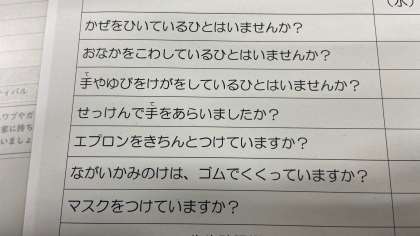 (水)
かぜをひいているひとはいませんか？
おなかをこわしているひとはいませんか？
手やゆびをけがをしているひとはいませんか？
せっけんで手をあらいましたか？
エプロンをきちんとつけていますか？
ながいかみのけは、ゴムでくくっていますか？
マスクをつけていますか？